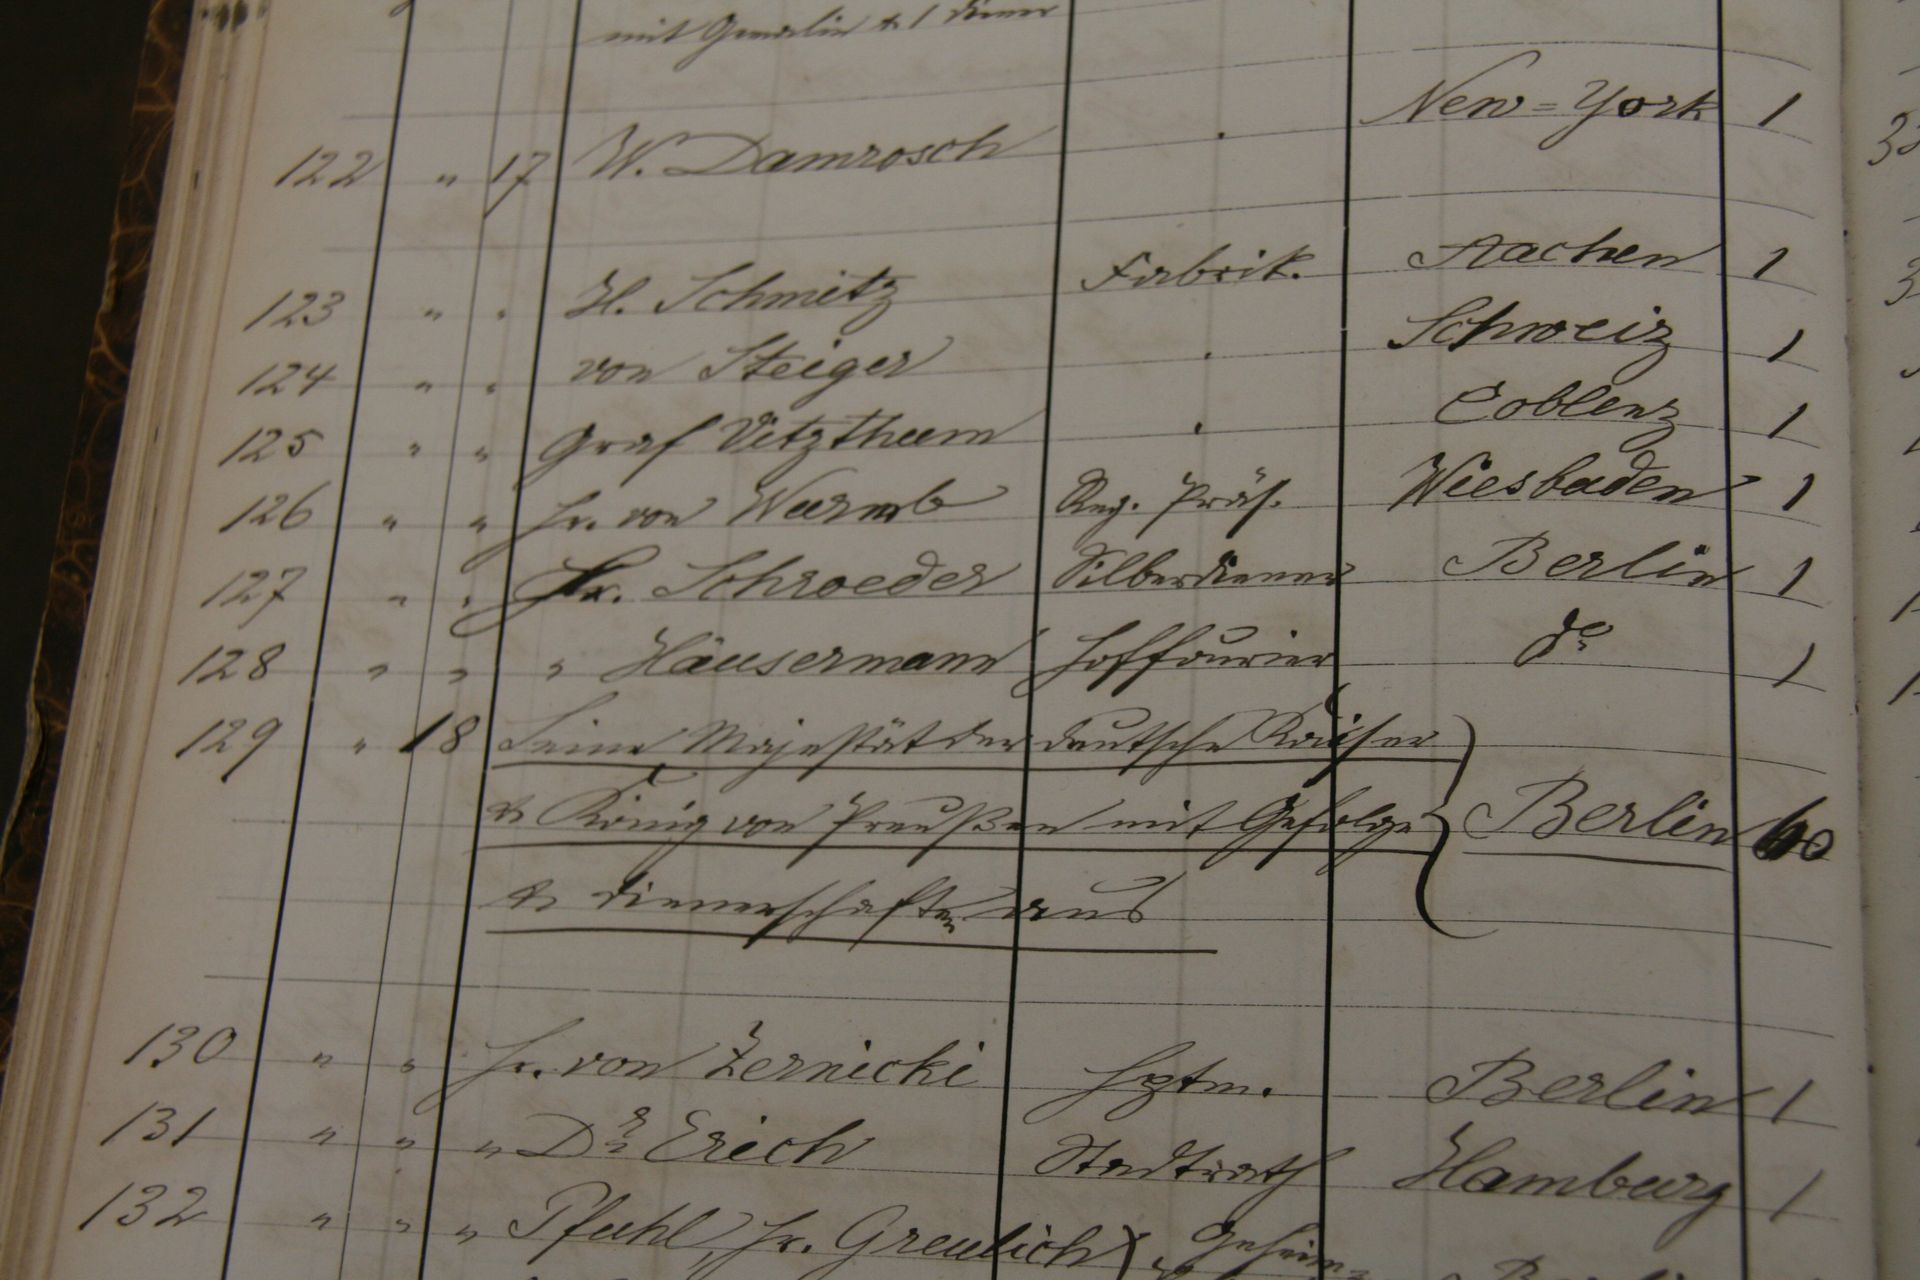 mit Gemalin & 1 Diener
122 " 17 W. Damrosch . New=York 1
123 " " H. Schmitz Fabrik. Aachen 1
124 " " von Steiger . Schweiz 1
125 " " Graf Vitzthum . Coblenz 1
126 " " Hr. von Wurmb Reg. Präs. Wiesbaden 1
127 " " Hr. Schroeder Silberdiener Berlin 1
128 " " " Häusermann Hoffourier do 1
129 " 18 Seine Majestät der deutsche Kaiser
& König von Preußen mit Gefolge Berlin 60
& Dienerschaften aus
130 " " Hr. von Zernicki Hptm. Berlin 1
131 " " " Dr. Erich Stadtrath Hamburg 1
132 " " " Pfuhl, Hr. Greulich